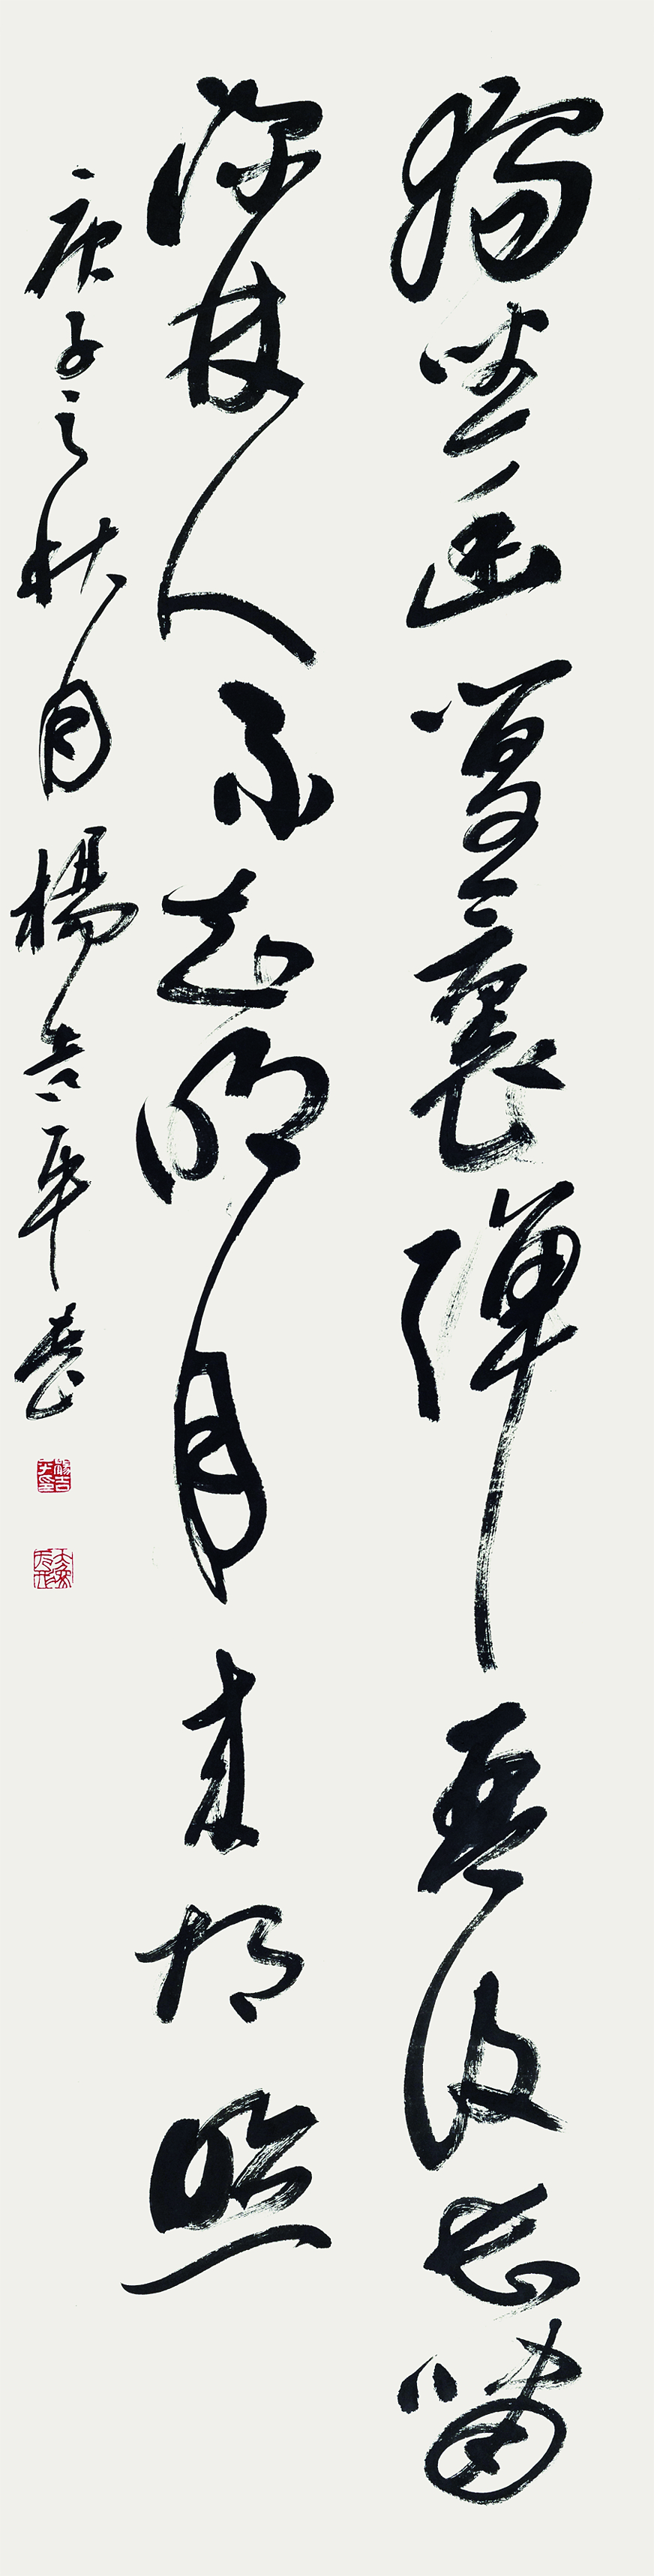 獨坐幽篁裏彈琴復長嘯
深林人不知明月來相照
庚子之秋月楊吉平書
楊吉平印